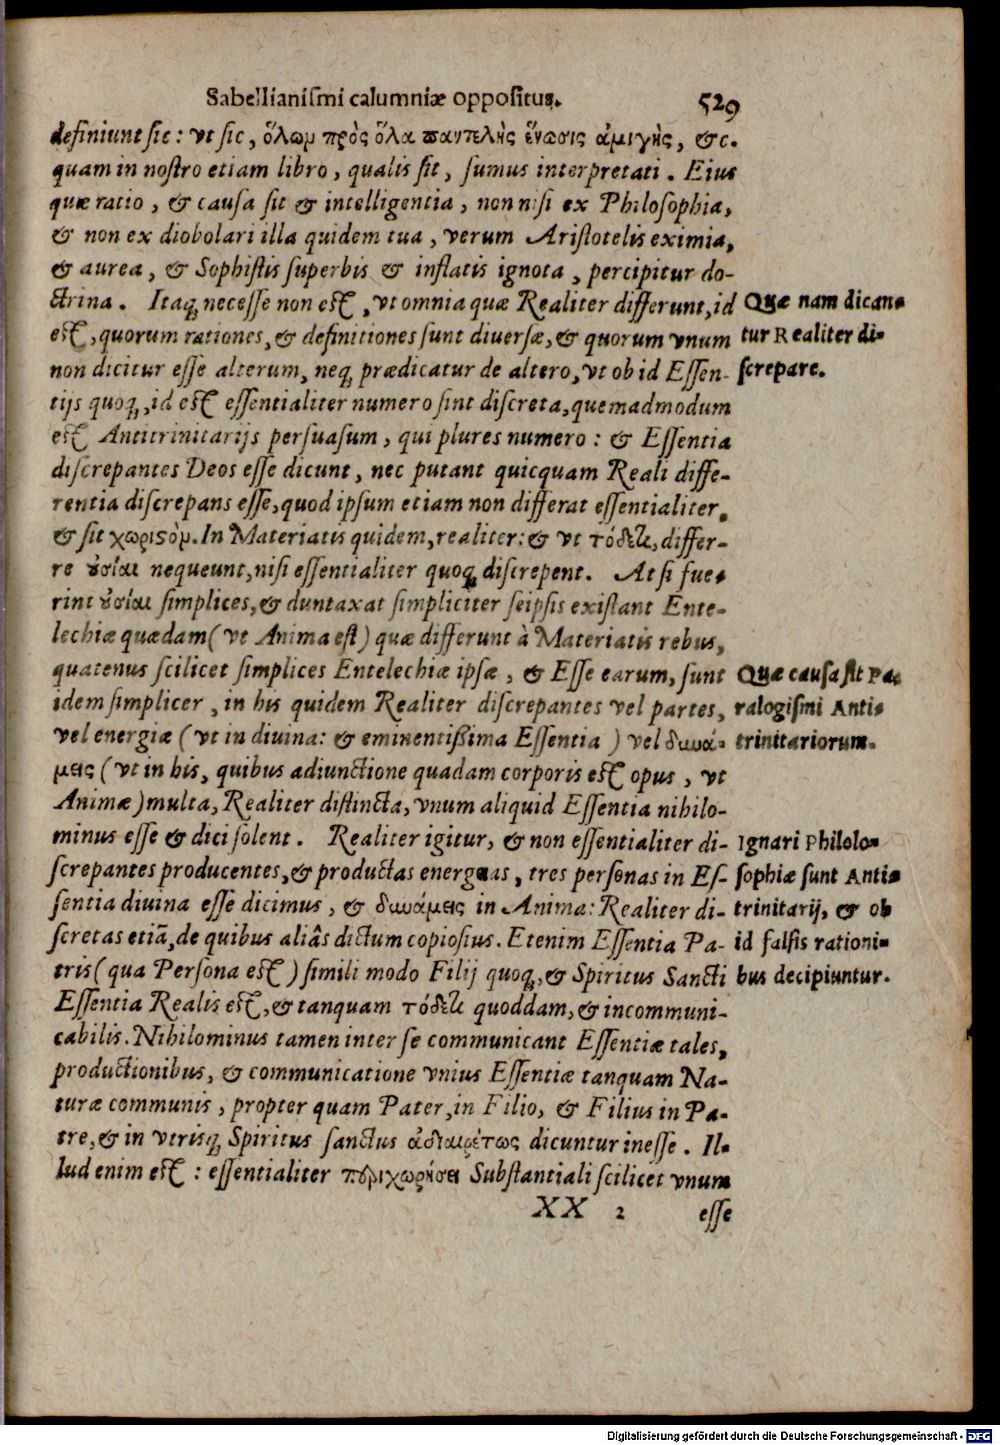 Sabellianismi calumniæ oppositus. 529
definiunt sic: vt sic, ὅλωμ πρὸς ὅλα παντελὴς ἕνωσις ἀμιγὴς, &c.
quam in nostro etiam libro, qualis sit, sumus interpretati. Eius
quæ ratio, & causa sit & intelligentia, non nisi ex Philosophia,
& non ex diobolari illa quidem tua, verum Aristotelis eximia,
& aurea, & Sophistis superbis & inflatis ignota, percipitur do-
ctrina. Itaq; necesse non est, vt omnia quæ Realiter differunt, id
est, quorum rationes, & definitiones sunt diuersæ, & quorum vnum
non dicitur esse alterum, neq; prædicatur de altero, vt ob id Essen-
tijs quoq;, id est essentialiter numero sint discreta, quemadmodum
est Antitrinitarijs persuasum, qui plures numero: & Essentia
discrepantes Deos esse dicunt, nec putant quicquam Reali diffe-
rentia discrepans esse, quod ipsum etiam non differat essentialiter,
& sit χωριςὸμ. In Materiatis quidem, realiter: & vt τόδετι, differ-
re ȣσίαι nequeunt, nisi essentialiter quoq; discrepent. At si fue-
rint ȣσίαι simplices, & duntaxat simpliciter seipsis existant Ente-
lechiæ quædam (vt Anima est) quæ differunt à Materiatis rebus,
quatenus scilicet simplices Entelechiæ ipsæ, & Esse earum, sunt
idem simplicer, in his quidem Realiter discrepantes vel partes,
vel energiæ (vt in diuina: & eminentißima Essentia) vel δυνά-
μεις (vt in his, quibus adiunctione quadam corporis est opus, vt
Animæ) multa, Realiter distincta, vnum aliquid Essentia nihilo-
minus esse & dici solent. Realiter igitur, & non essentialiter di-
screpantes producentes, & productas energias, tres personas in Es-
sentia diuina esse dicimus, & δυνάμεις in Anima: Realiter di-
scretas etiã, de quibus aliâs dictum copiosius. Etenim Essentia Pa-
tris (qua Persona est) simili modo Filij quoq;, & Spiritus Sancti
Essentia Realis est, & tanquam τόδετι quoddam, & incommuni-
cabilis. Nihilominus tamen inter se communicant Essentiæ tales,
productionibus, & communicatione vnius Essentiæ tanquam Na-
turæ communis, propter quam Pater, in Filio, & Filius in Pa-
tre, & in vtrisq; Spiritus sanctus ἀδιαιρέτως dicuntur inesse. Il-
lud enim est: essentialiter περιχωρήσει Substantiali scilicet vnum
XX 2 esse
Quæ nam dican-
tur Realiter di-
screpare.
Quæ causa sit Pa-
ralogismi Anti-
trinitariorum.
Ignari Philolo-
sophiæ sunt Anti-
trinitarij, & ob
id falsis rationi-
bus decipiuntur.
Digitalisierung gefördert durch die Deutsche Forschungsgemeinschaft - DFG